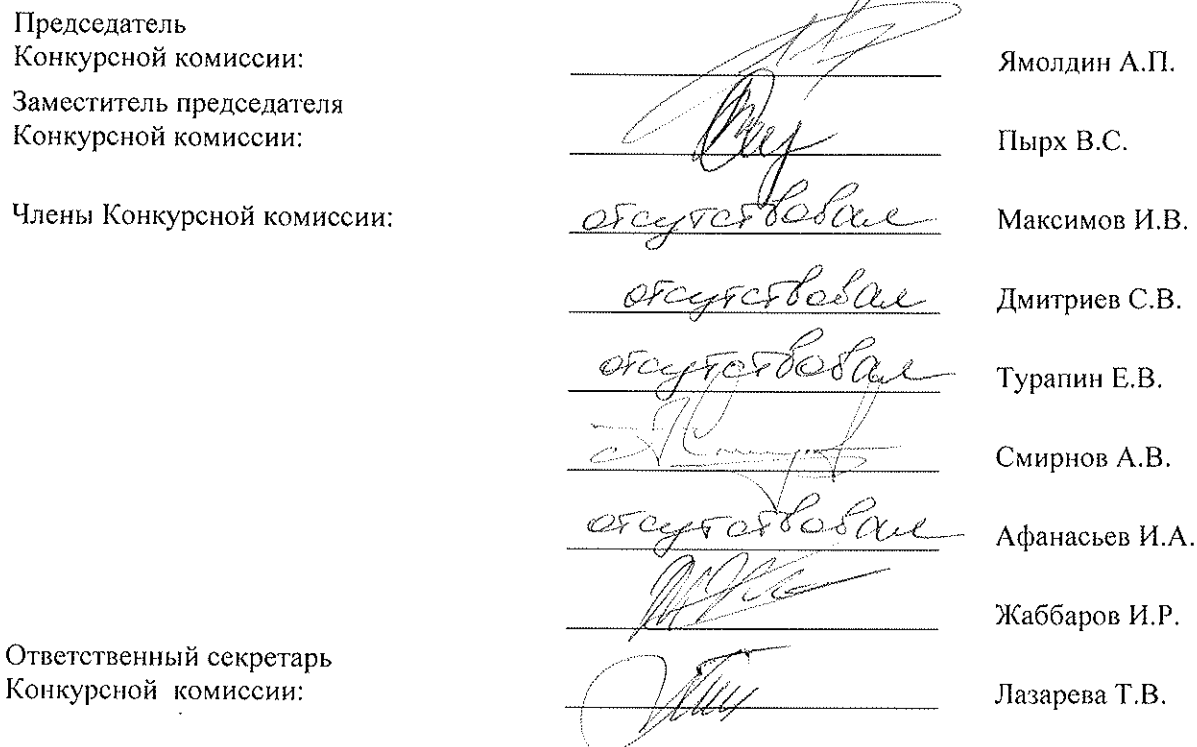 Председатель
Конкурсной комиссии: Ямолдин А.П.
Заместитель председателя
Конкурсной комиссии: Пырх В.С.
Члены Конкурсной комиссии: отсутствовал Максимов И.В.
отсутствовал Дмитриев С.В.
отсутствовал Турапин Е.В.
Смирнов А.В.
отсутствовал Афанасьев И.А.
Жаббаров И.Р.
Ответственный секретарь
Конкурсной комиссии: Лазарева Т.В.